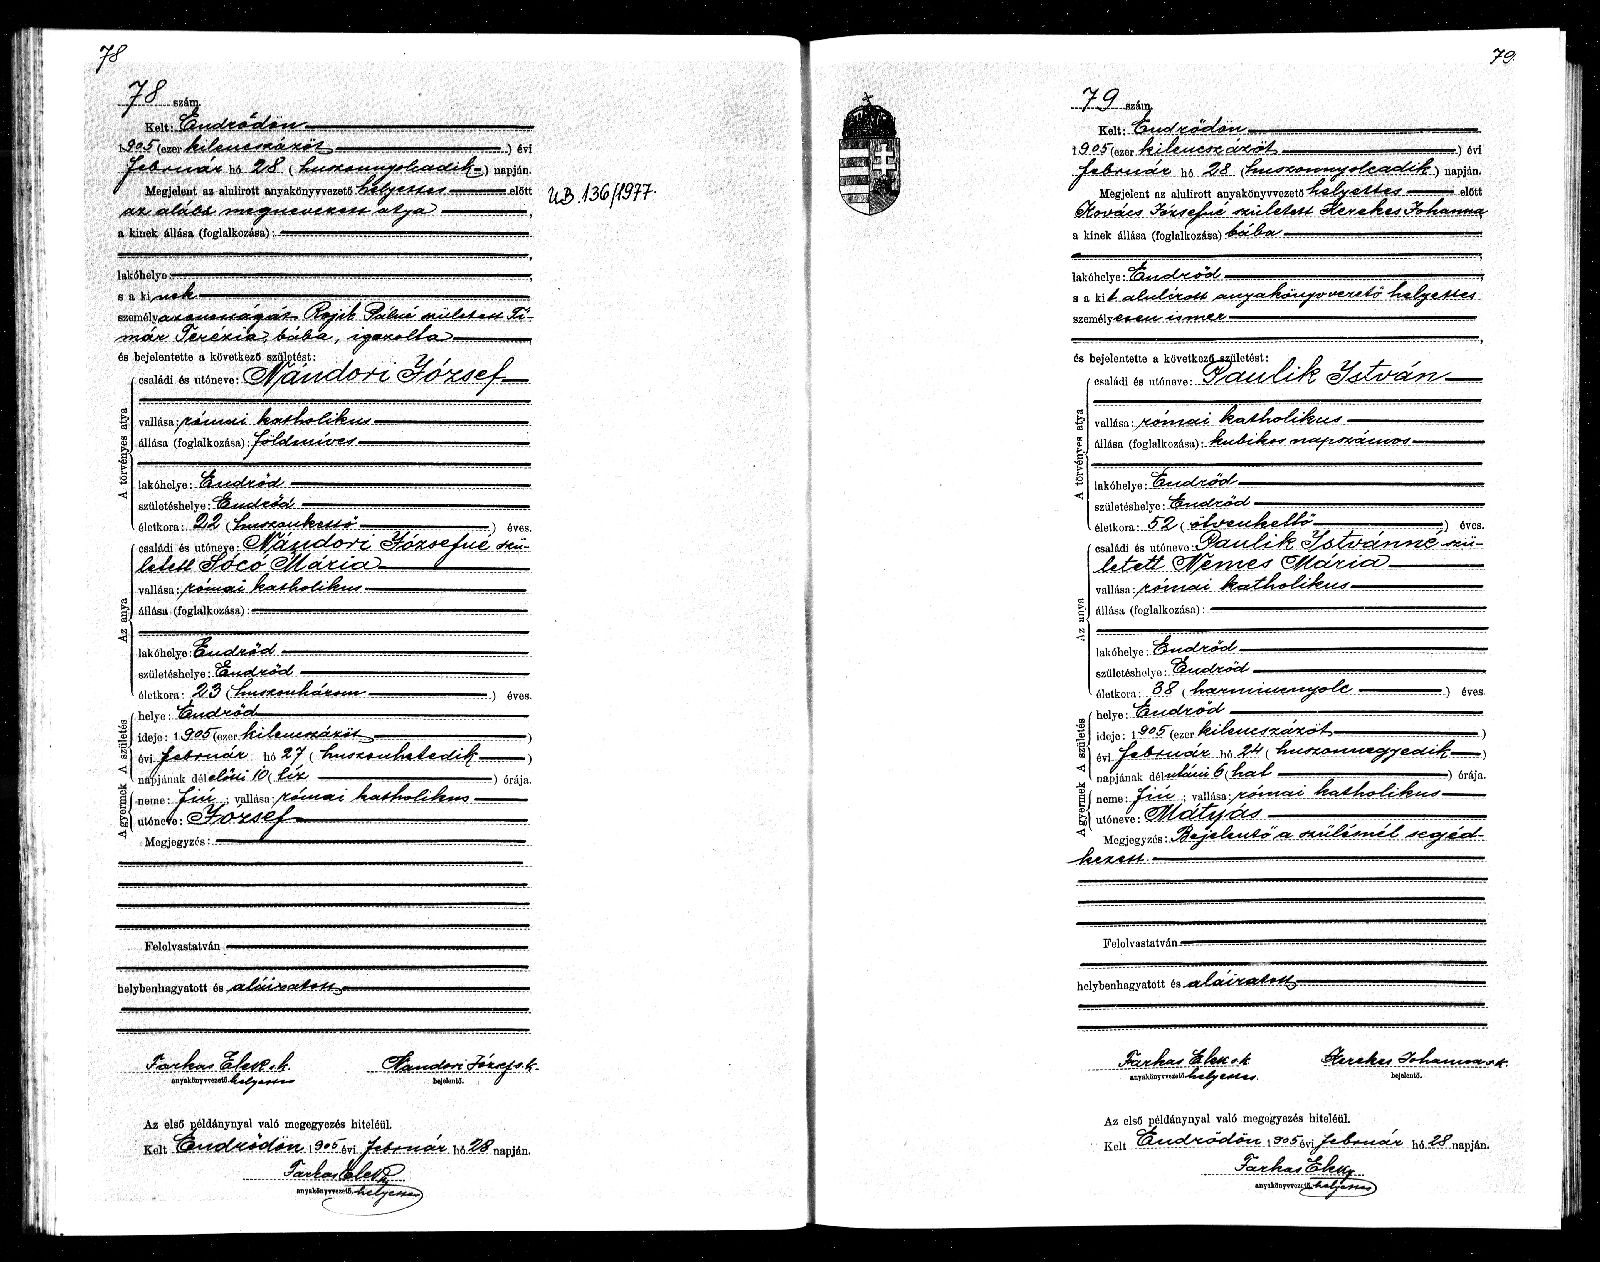 78
78 szám.
Kelt: Endrődön
1905 (ezer kilenczszázöt) évi
február hó 28 (huszonnyolcadik) napján.
Megjelent az alulirott anyakönyvvezető helyettes előtt
az alább megnevezett atya,
a kinek állása (foglalkozása):
lakóhelye
s a kinek
személyazonosságát Rojik Pálné született Ti-
már Terézia, bába, igazolta
és bejelentette a következő születést:
A törvényes atya
családi és utóneve: Nándori József
vallása: római katholikus
állása (foglalkozása): földmíves
lakóhelye: Endrőd
születéshelye: Endrőd
életkora: 22 (huszonkettő) éves.
Az anya
családi és utóneve: Nándori Józsefné szü-
letett Sócó Mária
vallása: római katholikus
állása (foglalkozása):
lakóhelye: Endrőd
születéshelye: Endrőd
életkora: 23 (huszonhárom) éves.
A születés
helye: Endrőd
ideje: 1905 (ezer kilenczszázöt)
évi február hó 27 (huszonhetedik)
napjának délelőtti 10 (tíz) órája.
A gyermek
neme: fiú; vallása: római katholikus
utóneve: József
Megjegyzés:
Felolvastatván
helybenhagyatott és aláiratott
Farkas Elek s.k. Nandori József s.k.
anyakönyvvezető helyettes bejelentő.
Az első példánynyal való megegyezés hiteléül.
Kelt Endrődön 1905 évi február hó 28 napján.
Farkas Elek
anyakönyvvezető. helyettes
UB. 136/1977.
79.
79 szám.
Kelt: Endrődön
1905 (ezer kilenczszázöt) évi
február hó 28 (huszonnyolcadik) napján.
Megjelent az alulirott anyakönyvvezető helyettes előtt
Kovács Józsefné született Kerekes Johanna
a kinek állása (foglalkozása) bába
lakóhelye: Endrőd
s a kit alulírott anyakönyvvezető helyettes
személyesen ismer
és bejelentette a következő születést:
A törvényes atya
családi és utóneve: Paulik István
vallása: római katholikus
állása (foglalkozása): kubikos napszámos
lakóhelye: Endrőd
születéshelye: Endrőd
életkora: 52 (ötvenkettő) éves.
Az anya
családi és utóneve: Paulik Istvánné szü-
letett Nemes Mária
vallása: római katholikus
állása (foglalkozása):
lakóhelye: Endrőd
születéshelye: Endrőd
életkora: 38 (harmincnyolc) éves.
A születés
helye: Endrőd
ideje: 1905 (ezer kilenczszázöt)
évi február hó 24 (huszonnegyedik)
napjának délutáni 6 (hat) órája.
A gyermek
neme: fiú; vallása: római katholikus
utóneve: Mátyás
Megjegyzés: Bejelentő a szülésnél segéd-
kezett.
Felolvastatván
helybenhagyatott és aláiratott
Farkas Elek s.k. Kerekes Johanna s.k.
anyakönyvvezető helyettes. bejelentő.
Az első példánynyal való megegyezés hiteléül.
Kelt Endrődön 1905 évi február hó 28 napján.
Farkas Elek
anyakönyvvezető. helyettes